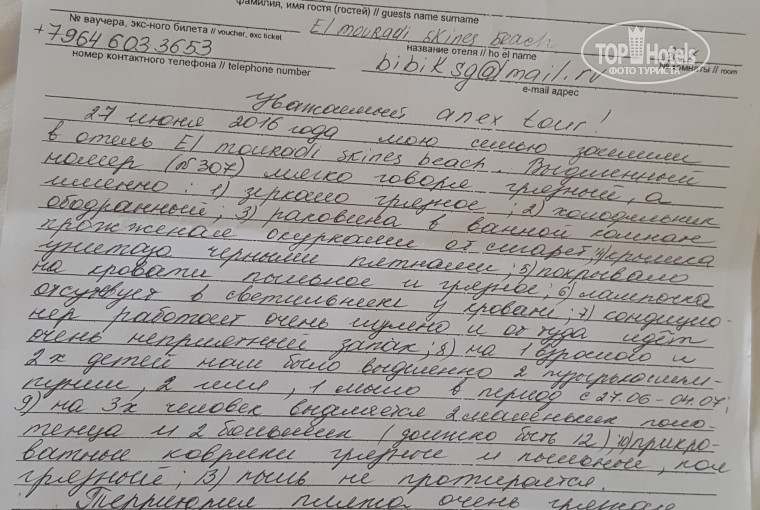 фамилия, имя гостя (гостей) // guests name surname
№ ваучера, экс-ного билета // voucher, exc ticket
El mouradi skines beach
TOP Hotels
ФОТО ТУРИСТА
+7964 603 3653
название отеля // ho el name
№ комнаты // room
номер контактного телефона // telephone number
bibiksg@mail.ru
e-mail адрес
Уважаемый anex tour!
27 июня 2016 года мою семью заселили
в отель El mouradi skines beach. Выделенный
номер (№307) мягко говоря грязный, а
именно: 1) зеркало грязное; 2) холодильник
ободранный; 3) раковина в ванной комнате
прожженая окурками от сигарет; 4) крышка
унитаза черными пятнами; 5) покрывало
на кровати пыльное и грязное; 6) лампочка
отсуствует в светильнике у кровати; 7) кондицио-
нер работает очень шумно и от туда идёт
очень неприятный запах; 8) на 1 взрослого и
2х детей нам было выделенно 2 пузырька шам-
пуни, 2 , 1 мыло в период с 27.06 - 04.07;
9) на 3х человек выдается 2 маленьких поло-
тенца и 2 больших (должно быть 12); 10) прикро-
ватные коврики грязные и пыльные, пол
грязный; 13) пыль не протирается.
Территория пляжа очень грязная